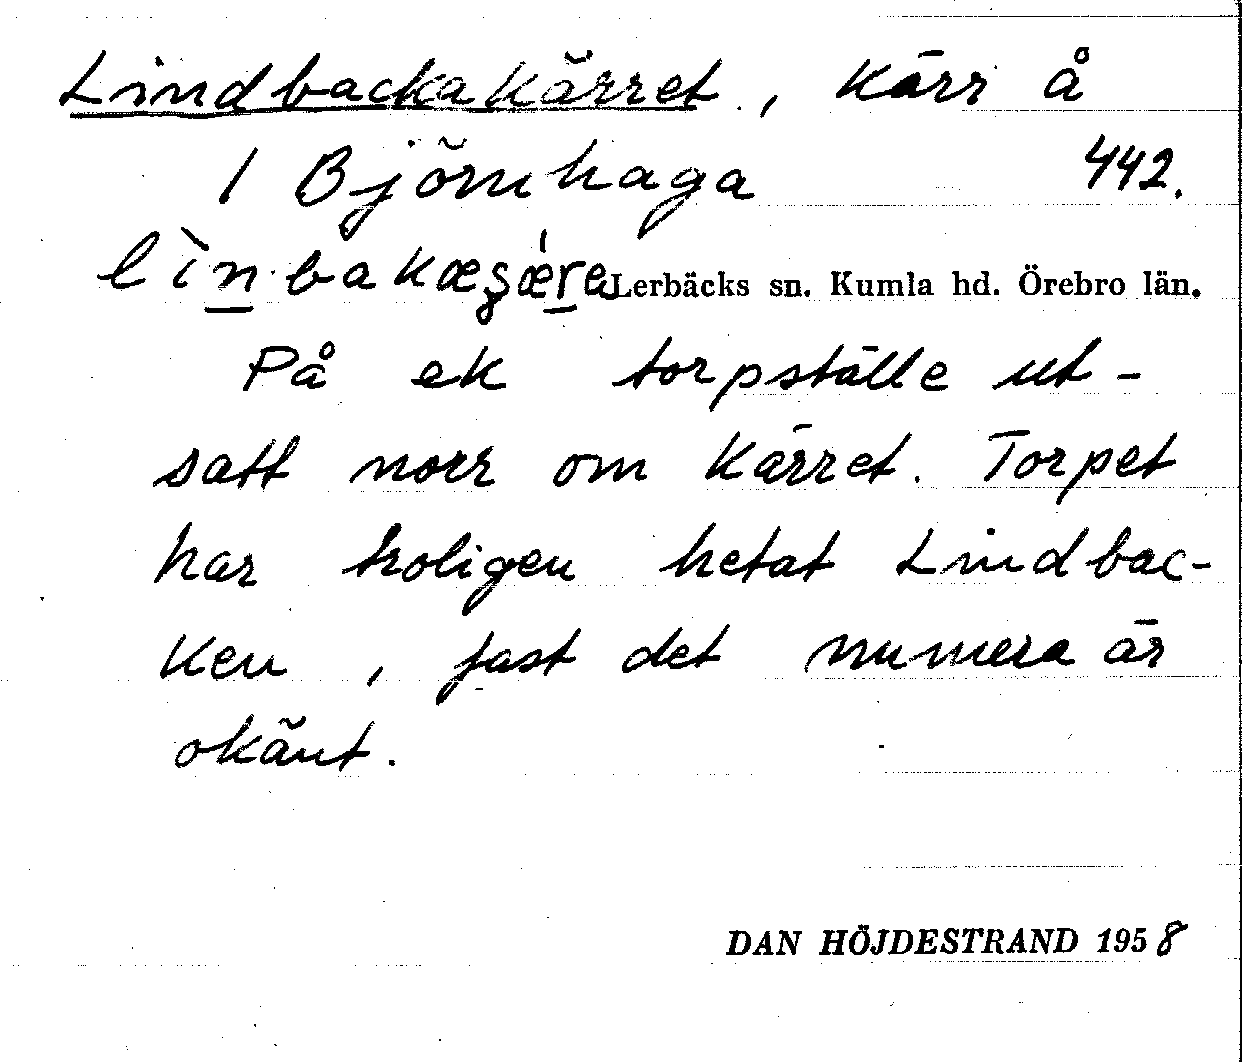 Lindbackakärret, kärr å
1 Björnhaga 442.
Lerbäcks sn. Kumla hd. Örebro län.
På ek torpställe ut-
satt norr om kärret. Torpet
har troligen hetat Lindbac-
ken, fast det numera är
okänt.
DAN HÖJDESTRAND 1958